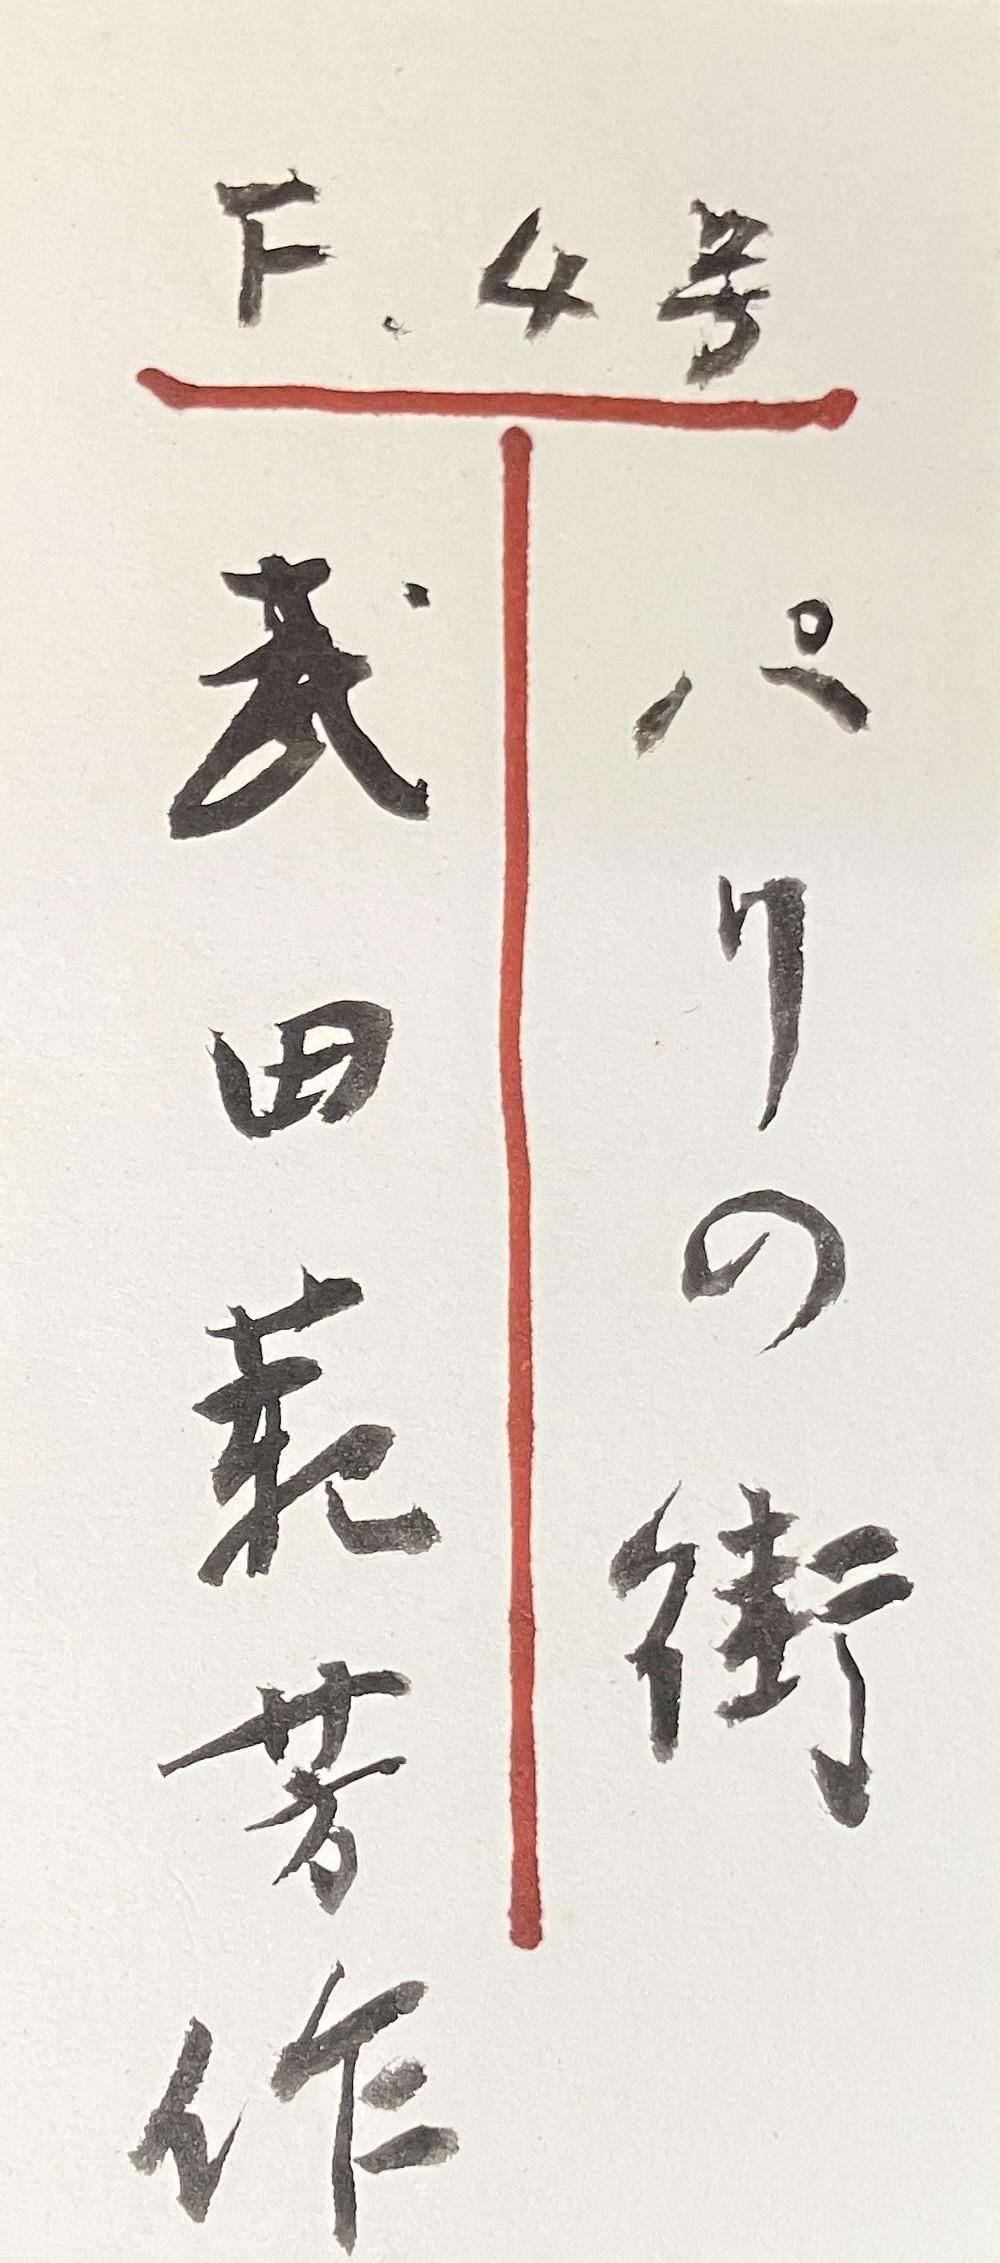 F.4号
パリの街
武田範芳作